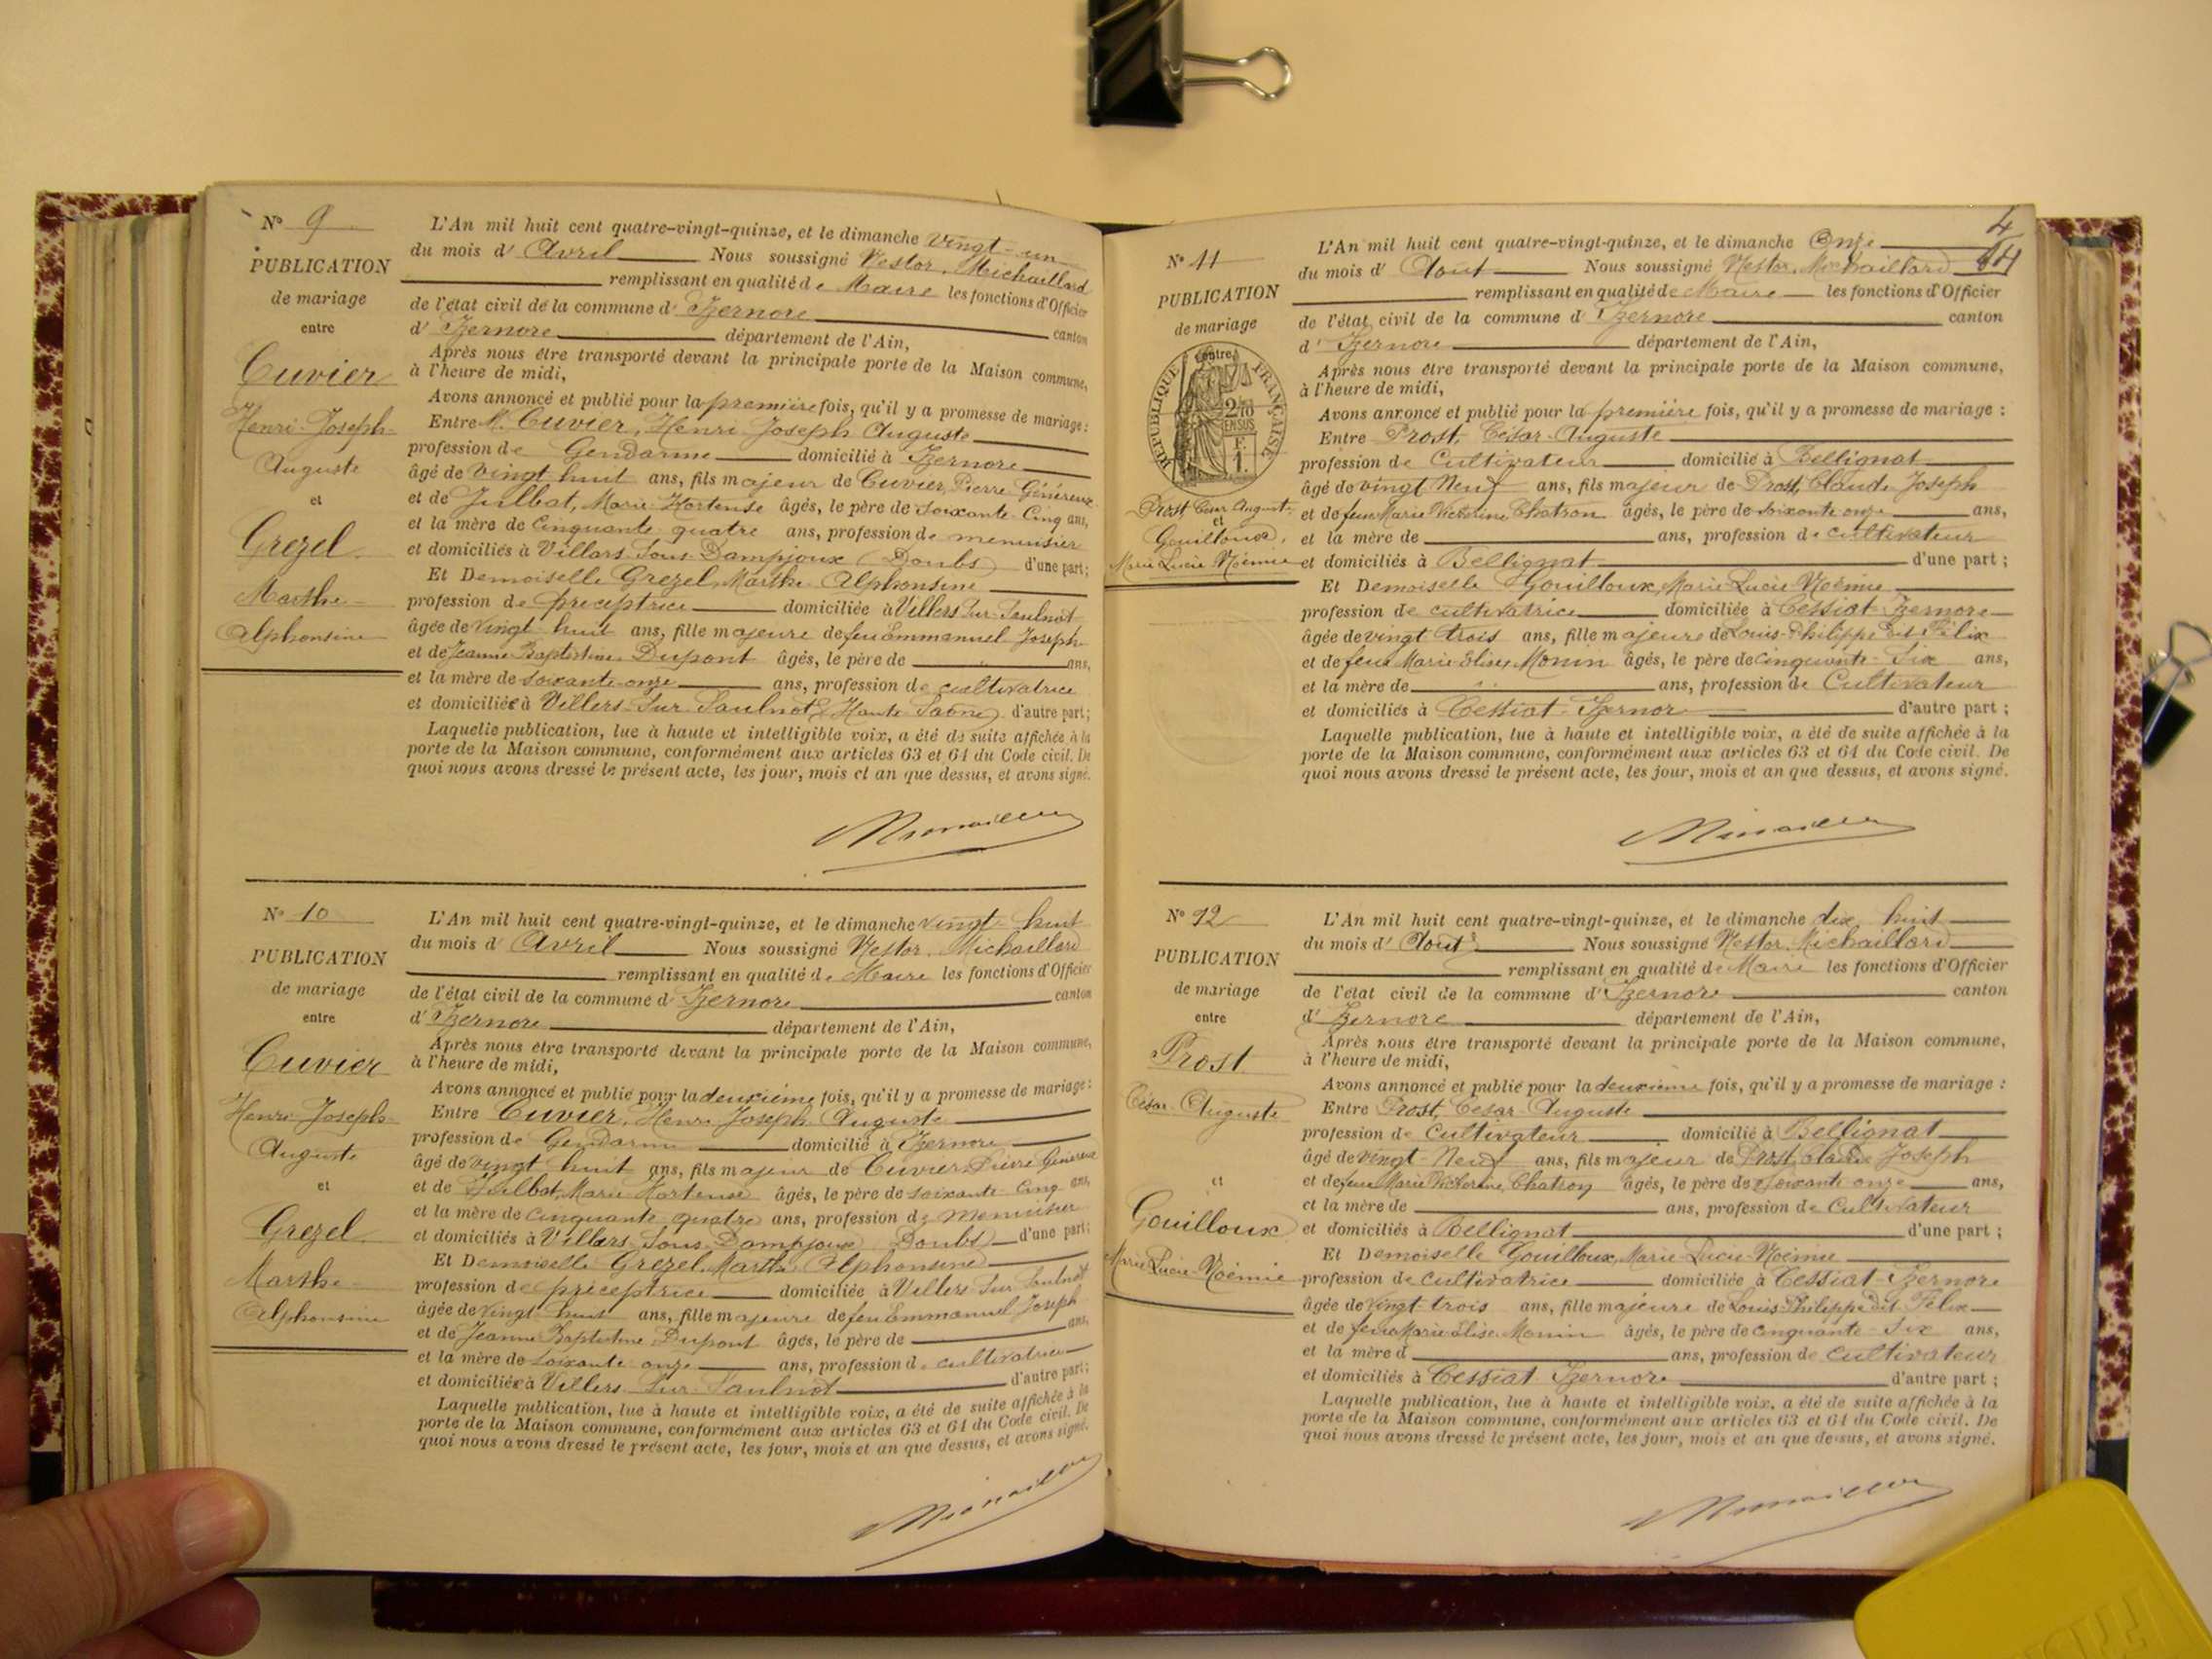 N° 9
PUBLICATION
de mariage
entre
Cuvier
Henri Joseph
Auguste
et
Grezel
Marthe
Alphonsine
L'An mil huit cent quatre-vingt-quinze, et le dimanche vingt-un
du mois d' Avril Nous soussigné Nestor Michaillard
remplissant en qualité de Maire les fonctions d'Officier
de l'état civil de la commune d' Izernore
canton
d' Izernore département de l'Ain,
Après nous être transporté devant la principale porte de la Maison commune,
à l'heure de midi,
Avons annoncé et publié pour la première fois, qu'il y a promesse de mariage :
Entre M. Cuvier, Henri Joseph Auguste
profession de Gendarme domicilié à Izernore
âgé de vingt huit ans, fils majeur de Cuvier, Pierre Généreux
et de Juilbat, Marie Hortense âgés, le père de soixante-cinq ans,
et la mère de cinquante quatre ans, profession de menuisier
et domiciliés à Villars-sous-Dampjoux (Doubs) d'une part;
Et Demoiselle Grezel, Marthe Alphonsine
profession de préceptrice domiciliée à Villers sur Saulnot
âgée de vingt huit ans, fille majeure de feu Emmanuel Joseph
et de Jeanne Baptistine Dupont âgés, le père de ans,
et la mère de soixante-onze ans, profession de cultivatrice
et domiciliés à Villers-sur-Saulnot (Haute Saône) d'autre part;
Laquelle publication, lue à haute et intelligible voix, a été de suite affichée à la
porte de la Maison commune, conformément aux articles 63 et 64 du Code civil. De
quoi nous avons dressé le présent acte, les jour, mois et an que dessus, et avons signé.
N° 10
PUBLICATION
de mariage
entre
Cuvier
Henri Joseph
Auguste
et
Grezel
Marthe
Alphonsine
L'An mil huit cent quatre-vingt-quinze, et le dimanche vingt-huit
du mois d' Avril Nous soussigné Nestor Michaillard
remplissant en qualité de Maire les fonctions d'Officier
de l'état civil de la commune d' Izernore canton
d' Izernore département de l'Ain,
Après nous être transporté devant la principale porte de la Maison commune,
à l'heure de midi,
Avons annoncé et publié pour la deuxième fois, qu'il y a promesse de mariage :
Entre Cuvier, Henri Joseph Auguste
profession de Gendarme domicilié à Izernore
âgé de vingt huit ans, fils majeur de Cuvier Pierre Généreux
et de Juilbat, Marie Hortense âgés, le père de soixante-cinq ans,
et la mère de cinquante quatre ans, profession de menuisier
et domiciliés à Villars-sous-Dampjoux Doubs) d'une part;
Et Demoiselle Grezel Marthe Alphonsine
profession de préceptrice domiciliée à Villers-sur-Saulnot
âgée de vingt huit ans, fille majeure de feu Emmanuel Joseph
et de Jeanne Baptistine Dupont âgés, le père de ans,
et la mère de soixante-onze ans, profession de cultivatrice
et domiciliés à Villers-sur-Saulnot d'autre part;
Laquelle publication, lue à haute et intelligible voix, a été de suite affichée à la
porte de la Maison commune, conformément aux articles 63 et 64 du Code civil. De
quoi nous avons dressé le présent acte, les jour, mois et an que dessus, et avons signé.
4
N° 11
PUBLICATION
de mariage
entre
RÉPUBLIQUE FRANÇAISE
2/10
EN SUS
F.
1.
Prost César August.
et
Gouilloux,
Marie Lucie Noémie
L'An mil huit cent quatre-vingt-quinze, et le dimanche Onze
du mois d' Aout Nous soussigné Nestor Michaillard
remplissant en qualité de Maire les fonctions d'Officier
de l'état civil de la commune d' Izernore canton
d' Izernore département de l'Ain,
Après nous être transporté devant la principale porte de la Maison commune,
à l'heure de midi,
Avons annoncé et publié pour la première fois, qu'il y a promesse de mariage :
Entre Prost, César-Auguste
profession de Cultivateur domicilié à Bellignat
âgé de vingt Neuf ans, fils majeur de Prost, Claude Joseph
et de feue Marie Victorine Chatron âgés, le père de soixante onze ans,
et la mère de ans, profession de cultivateur
et domiciliés à Bellignat d'une part ;
Et Demoiselle Gouilloux, Marie-Lucie Noémie
profession de cultivatrice domiciliée à Cessiat-Izernore
âgée de vingt trois ans, fille majeure de Louis-Philippe dit Félix
et de feue Marie Elise Monin âgés, le père de cinquante-six ans,
et la mère de ans, profession de Cultivateur
et domiciliés à Cessiat Izernor d'autre part ;
Laquelle publication, lue à haute et intelligible voix, a été de suite affichée à la
porte de la Maison commune, conformément aux articles 63 et 64 du Code civil. De
quoi nous avons dressé le présent acte, les jour, mois et an que dessus, et avons signé.
N° 12
PUBLICATION
de mariage
entre
Prost
César Auguste
et
Gouilloux
Marie Lucie Noémie
L'An mil huit cent quatre-vingt-quinze, et le dimanche dix huit
du mois d' Aout Nous soussigné Nestor Michaillard
remplissant en qualité de Maire les fonctions d'Officier
de l'état civil de la commune d' Izernore canton
d' Izernore département de l'Ain,
Après nous être transporté devant la principale porte de la Maison commune,
à l'heure de midi,
Avons annoncé et publié pour la deuxième fois, qu'il y a promesse de mariage :
Entre Prost, César-Auguste
profession de Cultivateur domicilié à Bellignat
âgé de vingt-Neuf ans, fils majeur de Prost Claude Joseph
et de feue Marie Victorine Chatron âgés, le père de soixante onze ans,
et la mère de ans, profession de Cultivateur
et domiciliés à Bellignat d'une part ;
Et Demoiselle Gouilloux, Marie-Lucie-Noémie
profession de cultivatrice domiciliée à Cessiat-Izernore
âgée de vingt-trois ans, fille majeure de Louis Philippe dit Félix
et de feue Marie Elise Monin âgés, le père de cinquante-six ans,
et la mère d ans, profession de cultivateur
et domiciliés à Cessiat Izernore d'autre part ;
Laquelle publication, lue à haute et intelligible voix, a été de suite affichée à la
porte de la Maison commune, conformément aux articles 63 et 64 du Code civil. De
quoi nous avons dressé le présent acte, les jour, mois et an que dessus, et avons signé.